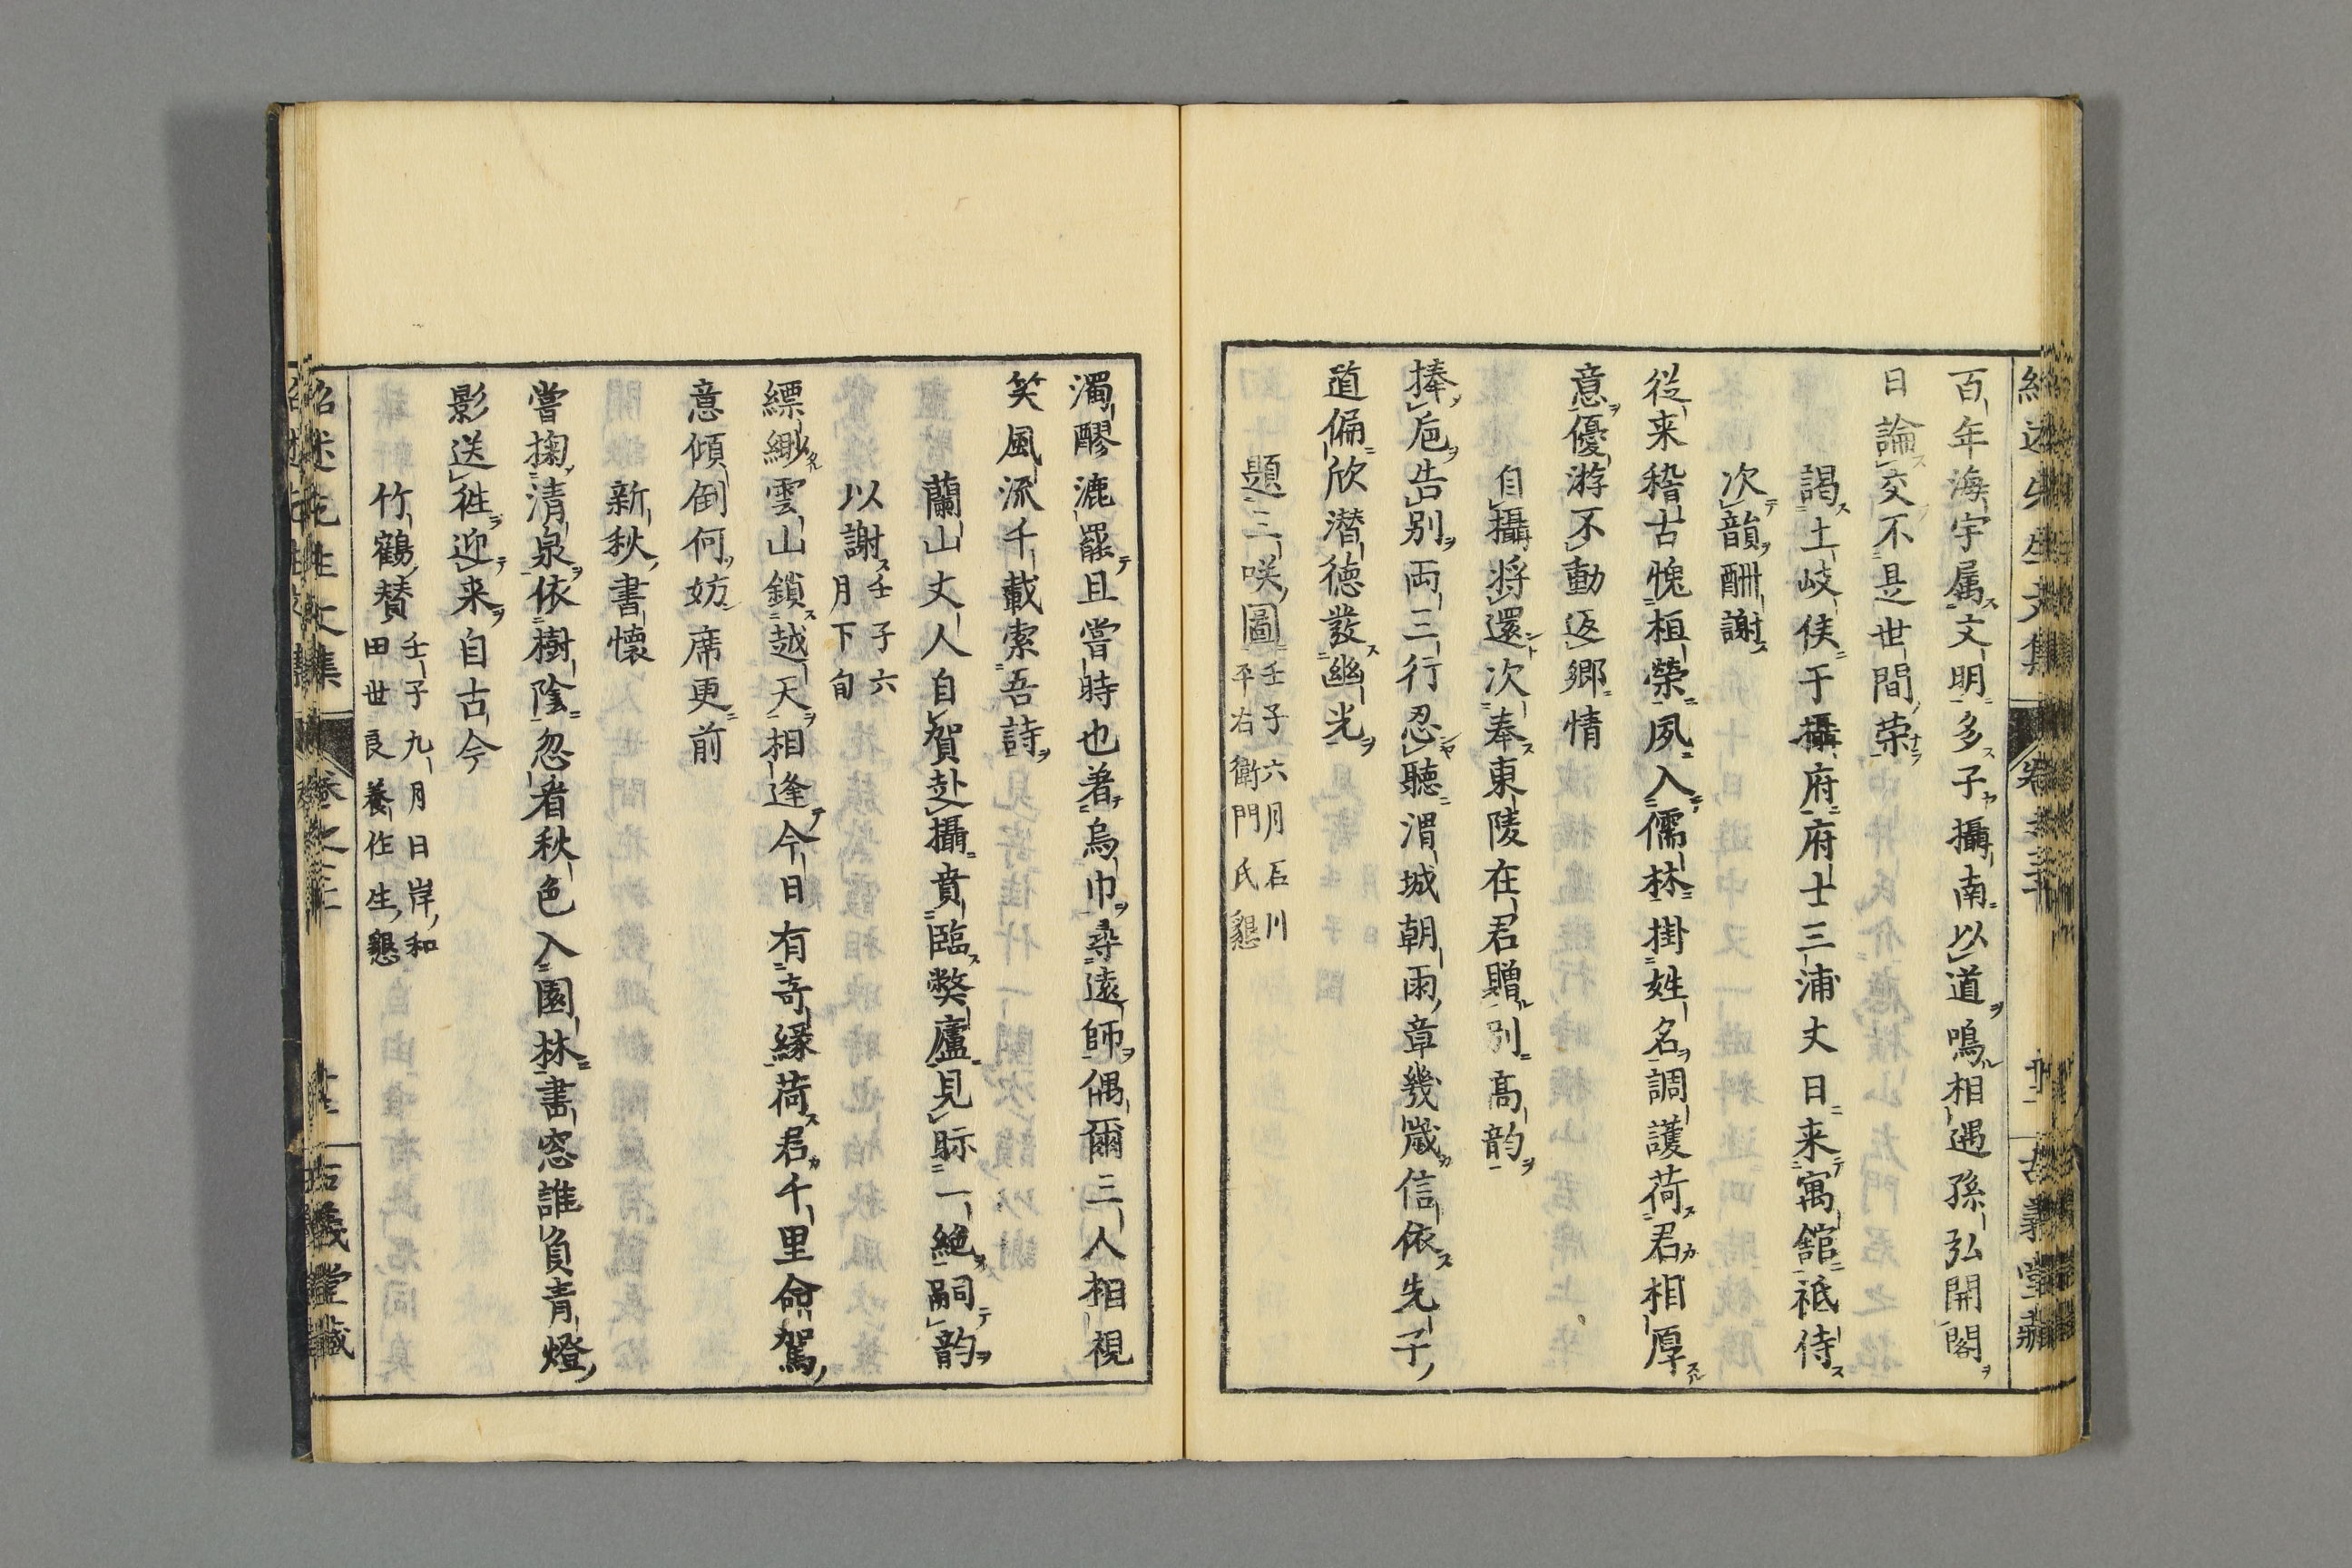 百年海宇属文明多士攝南以道鳴相遇孫弘開閣
日論交不是世間荣
謁土岐侯于攝府府士三浦丈日来寓舘祗侍
次韻酬謝
従来稽古愧桓榮夙入儒林掛姓名調護荷君相厚
意優游不動返郷情
自攝将還次奉東陵在君贈別高韵
捧巵告別両三行忍聴渭城朝雨章幾歳信依先子
道偏欣潜徳發幽光
題三咲圖壬子六月石川
平右衛門氏懇
濁醪漉罷且嘗時也著烏巾尋遠師偶爾三人相視
笑風流千載索吾詩
蘭山丈人自賀赴攝賁臨獘廬見眎一絶嗣韵
以謝壬子六
月下旬
縹緲雲山鎖越天相逢今日有奇縁荷君千里命駕
意傾倒何妨席更前
新秋書懐
嘗掬清泉依樹陰忽看秋色入園林書窓誰負青燈
影送徃迎来自古今
竹鶴賛壬子九月日岸和
田世良養作生懇
紹述先生文集
卷之三十
古義堂藏